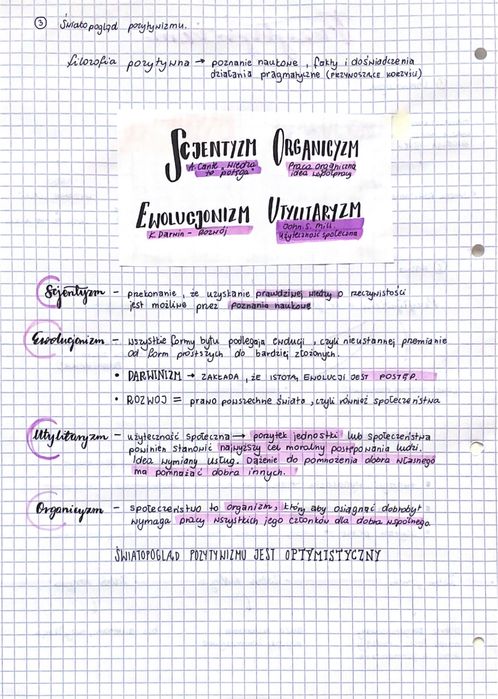 3 Światopogląd pozytywizmu.
filozofia pozytywna → poznanie naukowe, fakty i doświadczenia
działania pragmatyczne (PRZYNOSZĄCE KORZYŚCI)
SCJENTYZM
A. Comte, Wiedza
to potęga
ORGANICYZM
Praca organiczna
idea współpracy
EWOLUCJONIZM
K. Darwin - Rozwój
UTYLITARYZM
John. S. Mill.
użyteczność społeczna
Scjentyzm - przekonanie, że uzyskanie prawdziwej wiedzy o rzeczywistości
jest możliwe przez poznanie naukowe
Ewolucjonizm - wszystkie formy bytu podlegają ewolucji, czyli nieustannej przemianie
od form prostszych do bardziej złożonych.
• DARWINIZM → ZAKŁADA, ŻE ISTOTĄ EWOLUCJI JEST POSTĘP.
• ROZWÓJ = prawo powszechne świata, czyli również społeczeństwa
Utylitaryzm - użyteczność społeczna → pożytek jednostki lub społeczeństwa
powinien stanowić najwyższy cel moralny postępowania ludzi.
Idea wymiany usług. Dążenie do pomnożenia dobra własnego
ma pomnażać dobra innych.
Organicyzm - społeczeństwo to organizm, który aby osiągnąć dobrobyt
wymaga pracy wszystkich jego członków dla dobra wspólnego
ŚWIATOPOGLĄD POZYTYWIZMU JEST OPTYMISTYCZNY